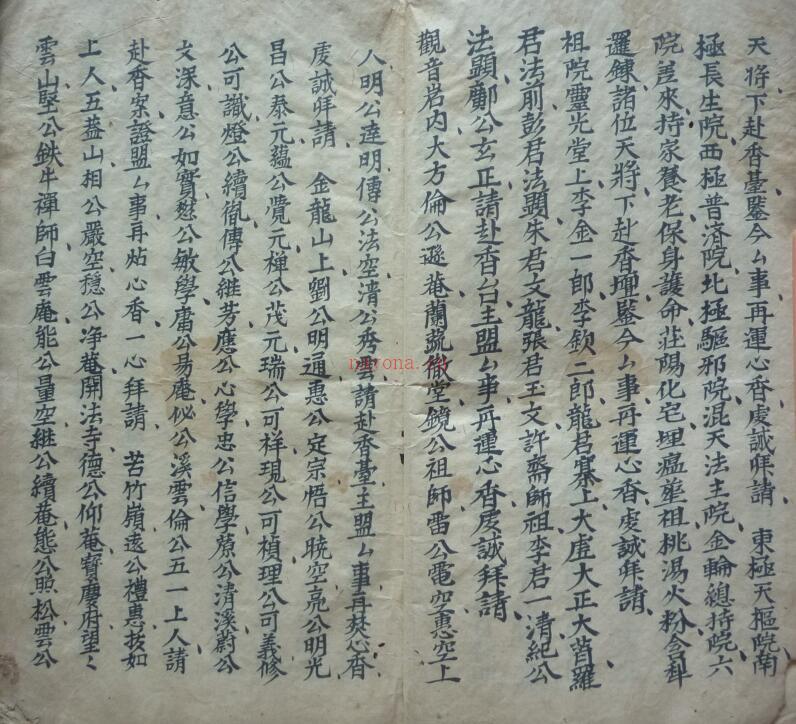 天將下赴香臺鑒今厶事再運心香虔誠拜請　東極天樞院南
極長生院西極普濟院北極驅邪院混天法主院金輪總持院六
院差來持家養老保身護命莊陽化宅埋瘟華祖桃湯火粉含
羅鍊諸位天將下赴香壇鑒今厶事再運心香虔誠拜請
祖院靈光堂上李金一郎李欽二郎龍君寨上大虛大正大首羅
君法前彭君法顕朱君文龍張君玉文許齋師祖李君一清紀公
法顕鄺公玄正請赴香台主盟厶事再運心香虔誠拜請
觀音岩内大方倫公遜菴蘭蔬徹堂鏡公祖師雷公電空惠空上
人明公達明傳公法空清公秀雲請赴香臺主盟厶事再焚心香
虔誠拜請　金龍山上劉公明通惠公定宗悟公曉空亮公明光
昌公泰元蘊公覺元禅公茂元瑞公可祥現公可楨理公可義修
公可識燈公續傳公継芳應公心學忠公信學公清溪蔚公
文深意公如實公敏學公易庵公溪雲倫公五一上人請
赴香案證盟厶事再炷心香一心拜請　苦竹嶺遠公禮惠拔如
上人五盖山相公嚴空穩公净菴開法寺德公仰菴寳慶府望〻
雲山堅公鉄牛禪師白雲庵能公量空継公續菴態公照松雲公